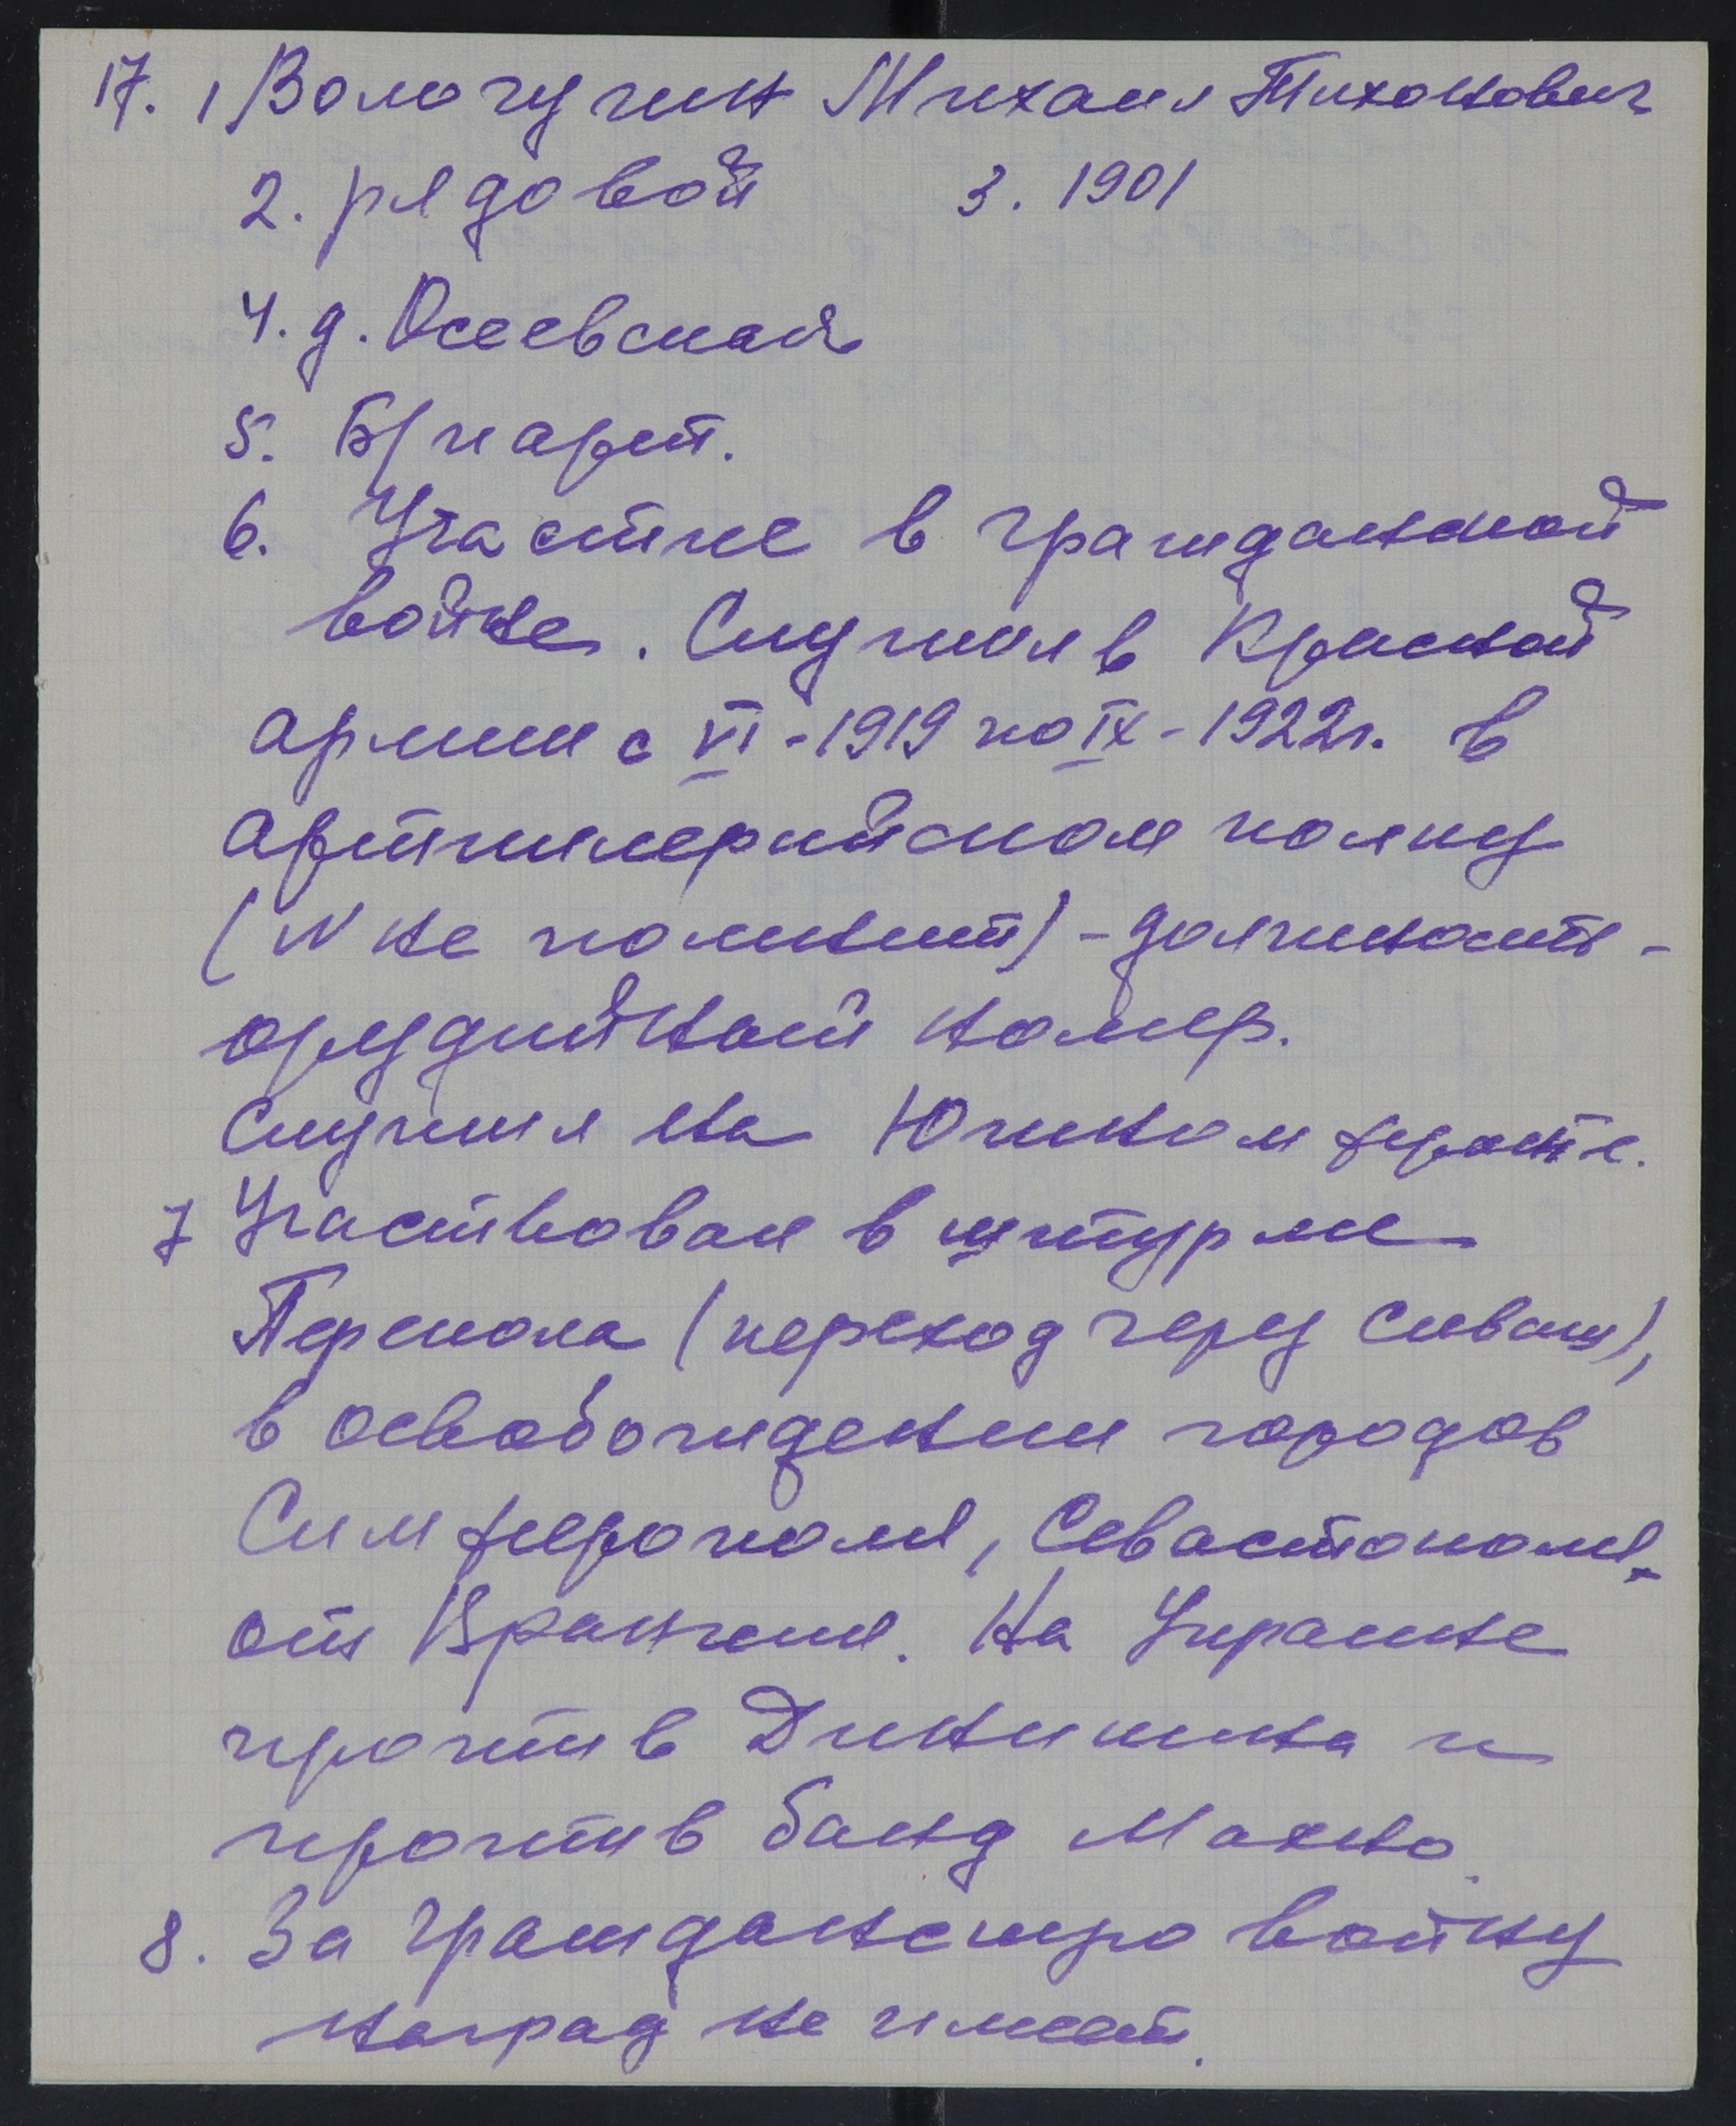 17. 1) Вологугин Михаил Тихонович
2. рядовой 3. 1901
4. д. Осеевская
5. Б/парт.
6. Участие в гражданской
войне. Служил в Красной
армии с VI-1919 по IX-1922г. в
артиллерийском полку
(N не помнит) - должность -
орудийный номер.
Служил на Южном фронте.
7 Участвовал в штурме
Перекопа (переход через Сиваш),
в освобождении городов
Симферополя, Севастополя
от Врангеля. На Украине
против Деникина и
против банд Махно.
8. За гражданскую войну
наград не имеет.